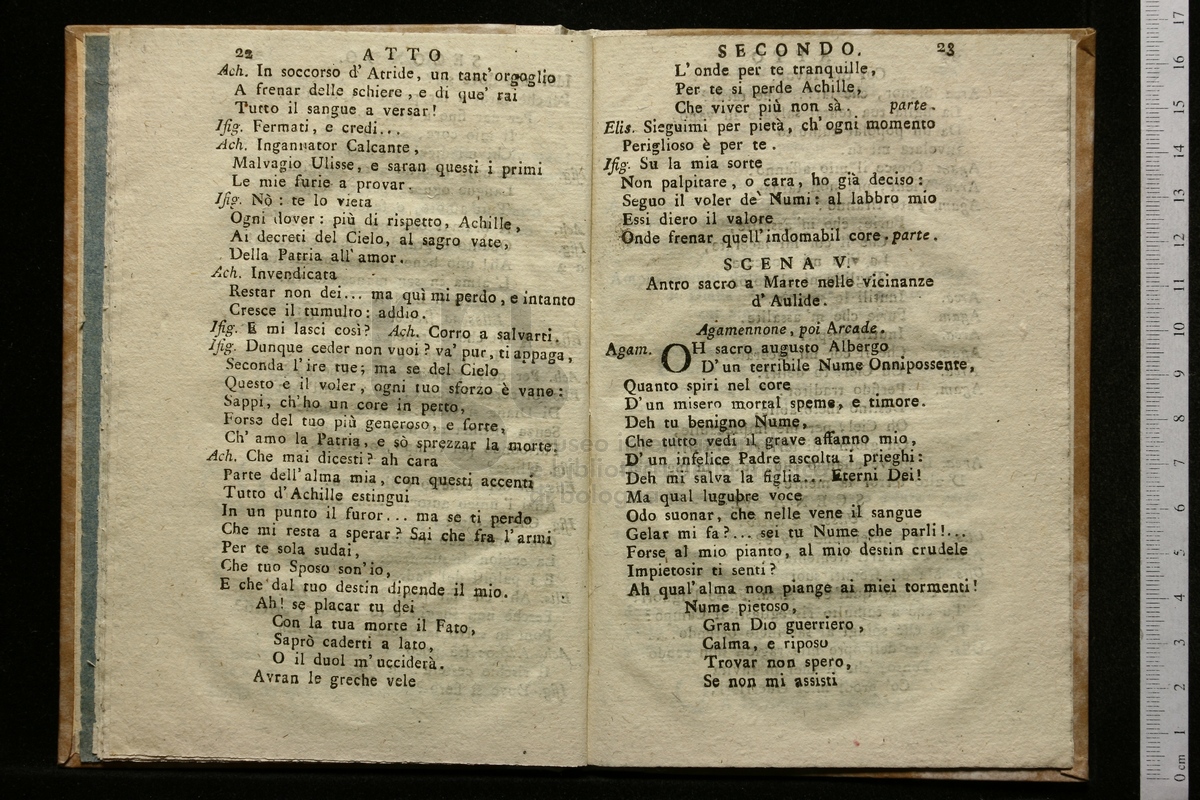 22 ATTO
Ach. In soccorso d' Atride, un tant' orgoglio
A frenar delle schiere, e di que' rai
Tutto il sangue a versar!
Ifig. Fermati, e credi...
Ach. Ingannator Calcante,
Malvagio Ulisse, e saran questi i primi
Le mie furie a provar.
Ifig. Nò: te lo vieta
Ogni dover: più di rispetto, Achille,
Ai decreti del Cielo, al sagro vate,
Della Patria all' amor.
Ach. Invendicata
Restar non dei... ma quì mi perdo, e intanto
Cresce il tumulto: addio.
Ifig. E mi lasci così? Ach. Corro a salvarti.
Ifig. Dunque ceder non vuoi? va' pur, ti appaga,
Seconda l' ire tue; ma se del Cielo
Questo è il voler, ogni tuo sforzo è vano:
Sappi, ch'ho un core in petto,
Forse del tuo più generoso, e forte,
Ch' amo la Patria, e sò sprezzar la morte.
Ach. Che mai dicesti? ah cara
Parte dell' alma mia, con questi accenti
Tutto d' Achille estingui
In un punto il furor... ma se ti perdo
Che mi resta a sperar? Sai che fra l' armi
Per te sola sudai,
Che tuo Sposo son' io,
E che dal tuo destin dipende il mio.
Ah! se placar tu dei
Con la tua morte il Fato,
Saprò caderti a lato,
O il duol m' ucciderà.
Avran le greche vele
SECONDO. 23
L' onde per te tranquille,
Per te si perde Achille,
Che viver più non sà. parte.
Elis. Sieguimi per pietà, ch' ogni momento
Periglioso è per te.
Ifig. Su la mia sorte
Non palpitare, o cara, ho già deciso:
Seguo il voler de' Numi: al labbro mio
Essi diero il valore
Onde frenar quell' indomabil core. parte.
SCENA V.
Antro sacro a Marte nelle vicinanze
d' Aulide.
Agamennone, poi Arcade.
Agam. OH sacro augusto Albergo
D' un terribile Nume Onnipossente,
Quanto spiri nel core
D' un misero mortal speme, e timore.
Deh tu benigno Nume,
Che tutto vedi il grave affanno mio,
D' un infelice Padre ascolta i prieghi:
Deh mi salva la figlia... Eterni Dei!
Ma qual lugubre voce
Odo suonar, che nelle vene il sangue
Gelar mi fa?... sei tu Nume che parli!...
Forse al mio pianto, al mio destin crudele
Impietosir ti senti?
Ah qual' alma non piange ai miei tormenti!
Nume pietoso,
Gran Dio guerriero,
Calma, e riposo
Trovar non spero,
Se non mi assisti